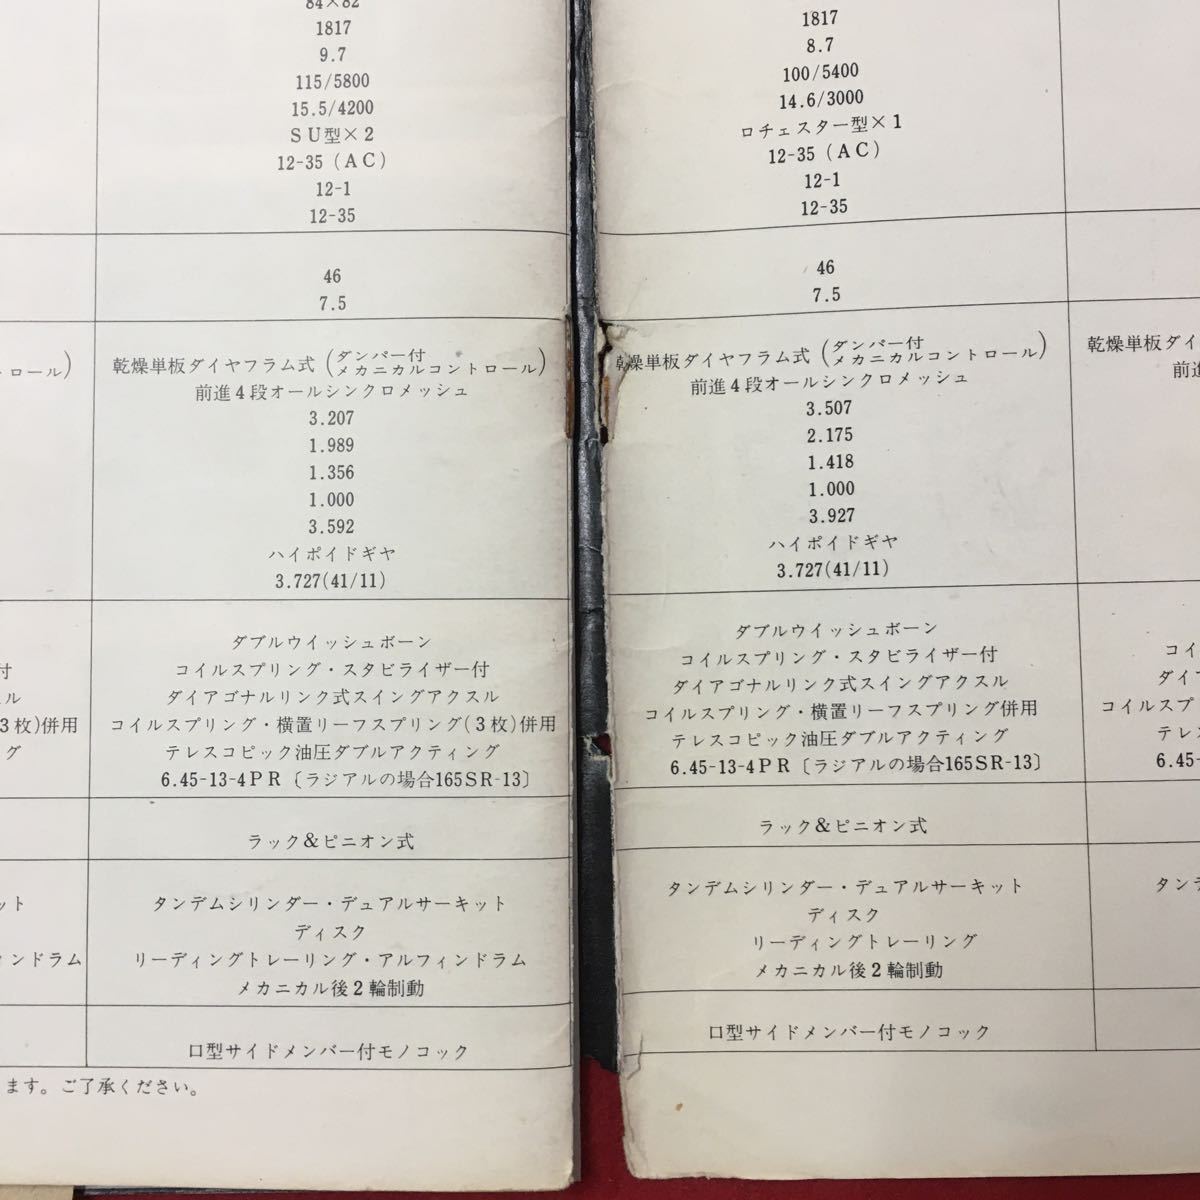 84×82
1817
9.7
115/5800
15.5/4200
SU型×2
12-35（AC）
12-1
12-35
46
7.5
トロール）
乾燥単板ダイヤフラム式（ダンパー付
メカニカルコントロール）
前進4段オールシンクロメッシュ
3.207
1.989
1.356
1.000
3.592
ハイポイドギヤ
3.727(41/11)
付
ル
3枚)併用
グ
ダブルウイッシュボーン
コイルスプリング・スタビライザー付
ダイアゴナルリンク式スイングアクスル
コイルスプリング・横置リーフスプリング(3枚)併用
テレスコピック油圧ダブルアクティング
6.45-13-4PR〔ラジアルの場合165SR-13〕
ラック&ピニオン式
ット
ィンドラム
タンデムシリンダー・デュアルサーキット
ディスク
リーディングトレーリング・アルフィンドラム
メカニカル後2輪制動
口型サイドメンバー付モノコック
ます。ご了承ください。
1817
8.7
100/5400
14.6/3000
ロチェスター型×1
12-35（AC）
12-1
12-35
46
7.5
乾燥単板ダイヤフラム式（ダンパー付
メカニカルコントロール）
前進4段オールシンクロメッシュ
3.507
2.175
1.418
1.000
3.927
ハイポイドギヤ
3.727(41/11)
ダブルウイッシュボーン
コイルスプリング・スタビライザー付
ダイアゴナルリンク式スイングアクスル
コイルスプリング・横置リーフスプリング併用
テレスコピック油圧ダブルアクティング
6.45-13-4PR〔ラジアルの場合165SR-13〕
ラック&ピニオン式
タンデムシリンダー・デュアルサーキット
ディスク
リーディングトレーリング
メカニカル後2輪制動
口型サイドメンバー付モノコック
乾燥単板ダイ
前進
コイ
ダイア
コイルスプ
テレス
6.45-
タンデ